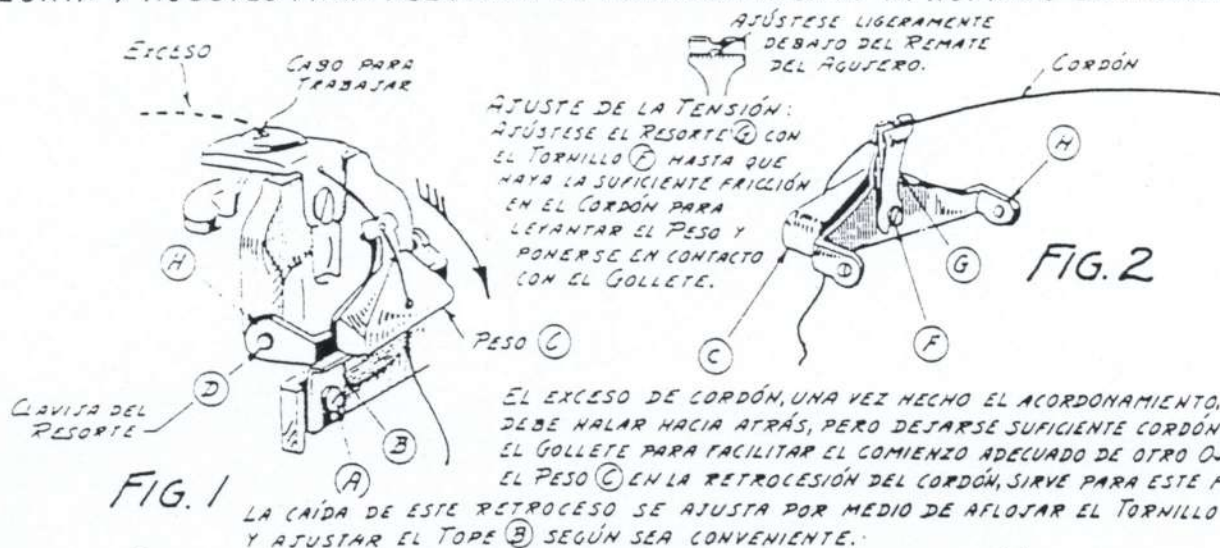 EXCESO
CABO PARA
TRABAJAR
AJÚSTESE LIGERAMENTE
DEBAJO DEL REMATE
DEL AGUJERO.
CORDÓN
AJUSTE DE LA TENSIÓN:
AJÚSTESE EL RESORTE G CON
EL TORNILLO F HASTA QUE
HAYA LA SUFICIENTE FRICCIÓN
EN EL CORDÓN PARA
LEVANTAR EL PESO Y
PONERSE EN CONTACTO
CON EL GOLLETE.
H
H
G
FIG. 2
PESO C
D
C
F
CLAVIJA DEL
RESORTE
B
A
FIG. 1
EL EXCESO DE CORDÓN, UNA VEZ HECHO EL ACORDONAMIENTO,
DEBE HALAR HACIA ATRÁS, PERO DEJARSE SUFICIENTE CORDÓN
EL GOLLETE PARA FACILITAR EL COMIENZO ADECUADO DE OTRO
EL PESO C EN LA RETROCESIÓN DEL CORDÓN, SIRVE PARA ESTE
LA CAÍDA DE ESTE RETROCESO SE AJUSTA POR MEDIO DE AFLOJAR EL TORNILLO
Y AJUSTAR EL TOPE B SEGÚN SEA CONVENIENTE.